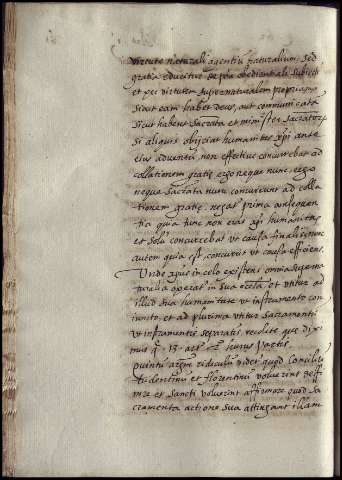 virtute naturali agentium naturalium, sed
gratia educitur de pña obedientiali subiecti
et per virtutem supranaturalem propriam
sicut eam habet Deus, aut communicatã
sicut habent sacrãta et minister sacratorũ
Si aliquis obijciat humanitas xpi ante
eius adventũ non effective concurrebat ad
collationem gratię ergo neque nunc, ergo
neque sacrãta nunc concurrunt ad colla
tionem gratię, negat prima consequen
tia quia tunc non erat xpi humanitas
et solũ concurrebat ut causa finalis, nunc
autem quia est, concurrit ut causa efficiens.
Unde agus in celo existens omnia superna
turalia operat in sua eccla, et utitur ad
illud sua humanitate ut instrumento con
iuncto, et ad plurima utitur sacramentis
ut instrumentis separatis, recolite quę dixi
mus q. 13. art. 2. huius partis.
Quintũ arḡm ridiculũ videt quod Conciliũ
tridentinũ et florentinũ voluerint
et sancti voluerint affirmare quod sa
cramenta actione sua attingant illam